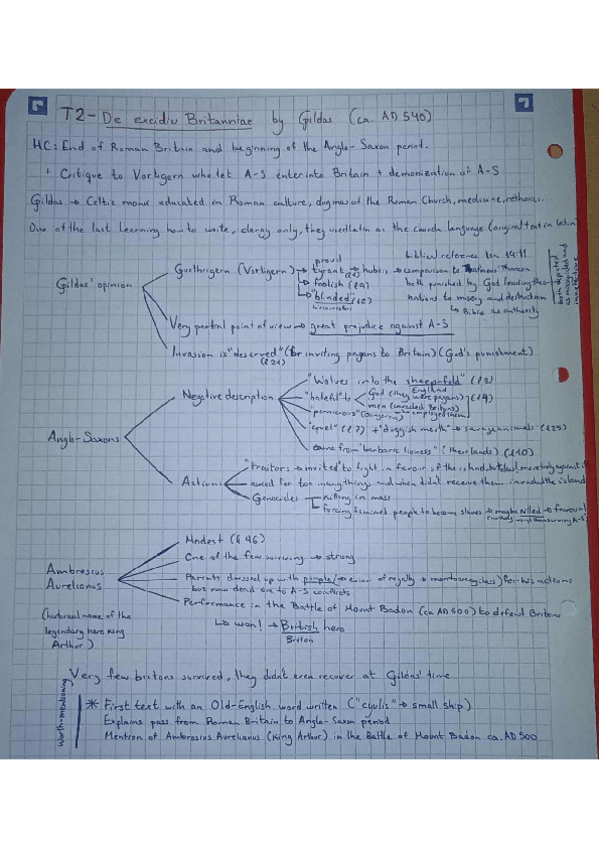 T2 - De excidiu Britanniae by Gildas (ca. AD 540)
HC: End of Roman Britain and beginning of the Anglo-Saxon period.
+ Critique to Vortigern who let A-S enter into Britain + demonization of A-S
Gildas → Celtic monk educated in Roman culture, dogmas of the Roman Church, medicine,
One of the last learning how to write, clergy only, they used latin as the church language (original text in latin)
Gildas' opinion
Gvrthrigern (Vortigern)
proud
tyrant → hubris → comparison to
foolish (l
"blinded"
biblical reference Isa. 19:11
both punished by God leading their
nations to misery and destruction
↳ Bible as authority
Very partial point of view → great prejudice against A-S
Invasion is "deserved" (for inviting pagans to Britain) (God's punishment)
Anglo-Saxons
Negative description
"Wolves into the sheep-fold" (l 3)
England
"hateful" to
God (they were pagans)
men
(l4)
"cruel" (l 7) + "doggish → savage animals (l 25)
came from "barbaric lioness" (their lands) (l 10)
Actions
"traitors → invited to fight in favour of the island, but
asked for too many things and when didn't receive them invaded the island
Genocides
killing in mass
forcing people to become slaves → maybe killed → favour!
Ambrosius
Aurelianus
(historical name of the
legendary hero King
Arthur)
Modest (l 46)
One of the few surviving → strong
Parents dressed up with purple for his actions
but now dead due to A-S conflicts
Performance in the Battle of Mount Badon (ca AD 500) to defend Britons
↳ won! → British hero
Briton
Very few britons survived, they didn't even recover at Gildas' time
worth-mentioning
* First text with an Old-English word written ("cyulis" → small ship)
Explains pass from Roman Britain to Anglo-Saxon period
Mention of Ambrosius Aurelianus (King Arthur) in the Battle of Mount Badon ca. AD 500